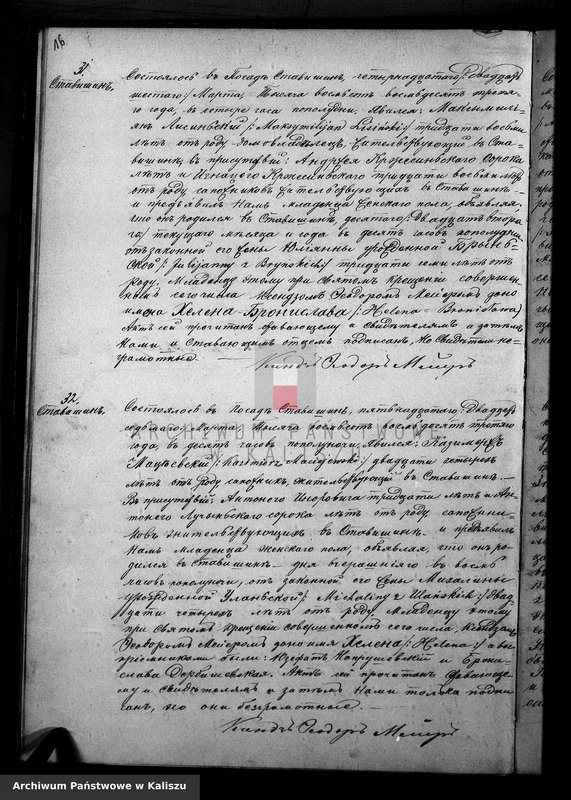 16
31.
Ставишинъ,
Состоялось въ Посадѣ Ставишинъ, четырнадцатаго /: Двадцать
шестаго :/ Марта, Тысяча восемьсотъ восемьдесятъ третья-
го года, въ четыре часа пополудни. Явился: Максимили-
янъ Лисинскій /: Maksymilijan Lisinski :/ тридцати восьми
лѣтъ отъ роду домовладѣлецъ, жительствующій въ Ста-
вишинѣ, въ присутствіи: Андрея Кржесинскаго Сорока
лѣтъ и Игнацего Кржесинскаго тридцати восьми лѣтъ
отъ роду, сапожниковъ жительствующихъ въ Ставишинѣ. —
и предъявилъ Намъ младенца женскаго пола, объявляя,
что онъ родился въ Ставишинѣ, десятаго /: Двадцать втора-
го :/ текущаго мѣсяца и года въ десять часовъ пополудни
отъ законной его жены Юліянны урожденной
тридцати семи лѣтъ отъ
роду. Младенцу этому при святомъ крещеніи совершен-
нымъ сего числа Ксендзомъ Ѳеодоромъ Мейеромъ дано
имена Хелена Бронислава /: Helena - Bronisława
Актъ сей прочитанъ объявляющему и свидѣтелямъ а затѣмъ
Нами и отцемъ подписанъ, но свидѣтели не-
грамотные. —
Ксендзъ Ѳеодоръ Мейеръ
ARCHIWUM PAŃSTWOWE
W KALISZU
32.
Ставишинъ,
Состоялось въ Посадѣ Ставишинъ, пятьнадцатаго /: Двадцать
седьмаго :/ Марта, Тысяча восемьсотъ восемьдесятъ третьяго
года, въ десять часовъ пополуночи, явился: Казимержъ
двадцати четырехъ
лѣтъ отъ роду сапожникъ, жительствующій въ Ставишинѣ. —
Въ присутствіи: Антонего тридцати лѣтъ и Ан-
тонего сорока лѣтъ отъ роду сапожни-
ковъ жительствующихъ въ Ставишинѣ. и предъявилъ
Намъ Младенца женскаго пола, объявляя, что онъ ро-
дился въ Ставишинѣ дня вчерашняго въ восемь
часовъ пополуночи, отъ законной его жены Михалины
урожденной Улановской /: Michaliny z :/ Двад-
цати четырехъ лѣтъ отъ роду. Младенцу этому
при Святомъ крещеніи совершенномъ сего числа, Ксендзомъ
Ѳеодоромъ Мейеромъ дано имя Хелена /: Helena :/ а вос-
пріемниками были: Юзефатъ и Брони-
слава. Актъ сей прочитанъ объявляюще-
му и свидѣтелямъ и затѣмъ Нами только подпи-
санъ, но они безграмотные. —
Ксендзъ Ѳеодоръ Мейеръ
Archiwum Państwowe w Kaliszu